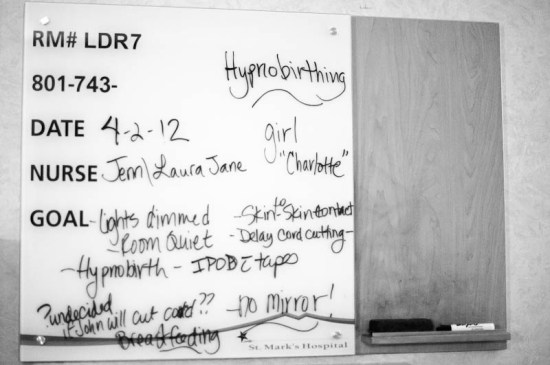 RM# LDR7
801-743-
Hypnobirthing
DATE 4-2-12
girl
"Charlotte"
NURSE Jenn\Laura Jane
GOAL - lights dimmed
- Room Quiet
- Skin to Skin contact
- Delay cord cutting -
- Hypnobirth - IPOD c̄ tapes
?undecided if John will cut cord??
- no mirror!
Breastfeeding
St. Mark's Hospital